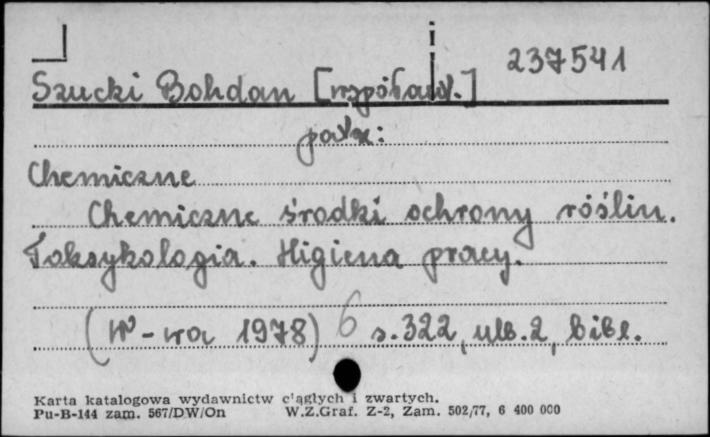 237541
Szucki Bohdan [współaut.]
patrz:
Chemiczne
Chemiczne środki ochrony roślin.
Toksykologia. Higiena pracy.
(W-wa 1978) 6 s.322, ulb.2, bibl.
Karta katalogowa wydawnictw ciągłych i zwartych.
Pu-B-144 zam. 567/DW/On W.Z.Graf. Z-2, Zam. 502/77, 6 400 000